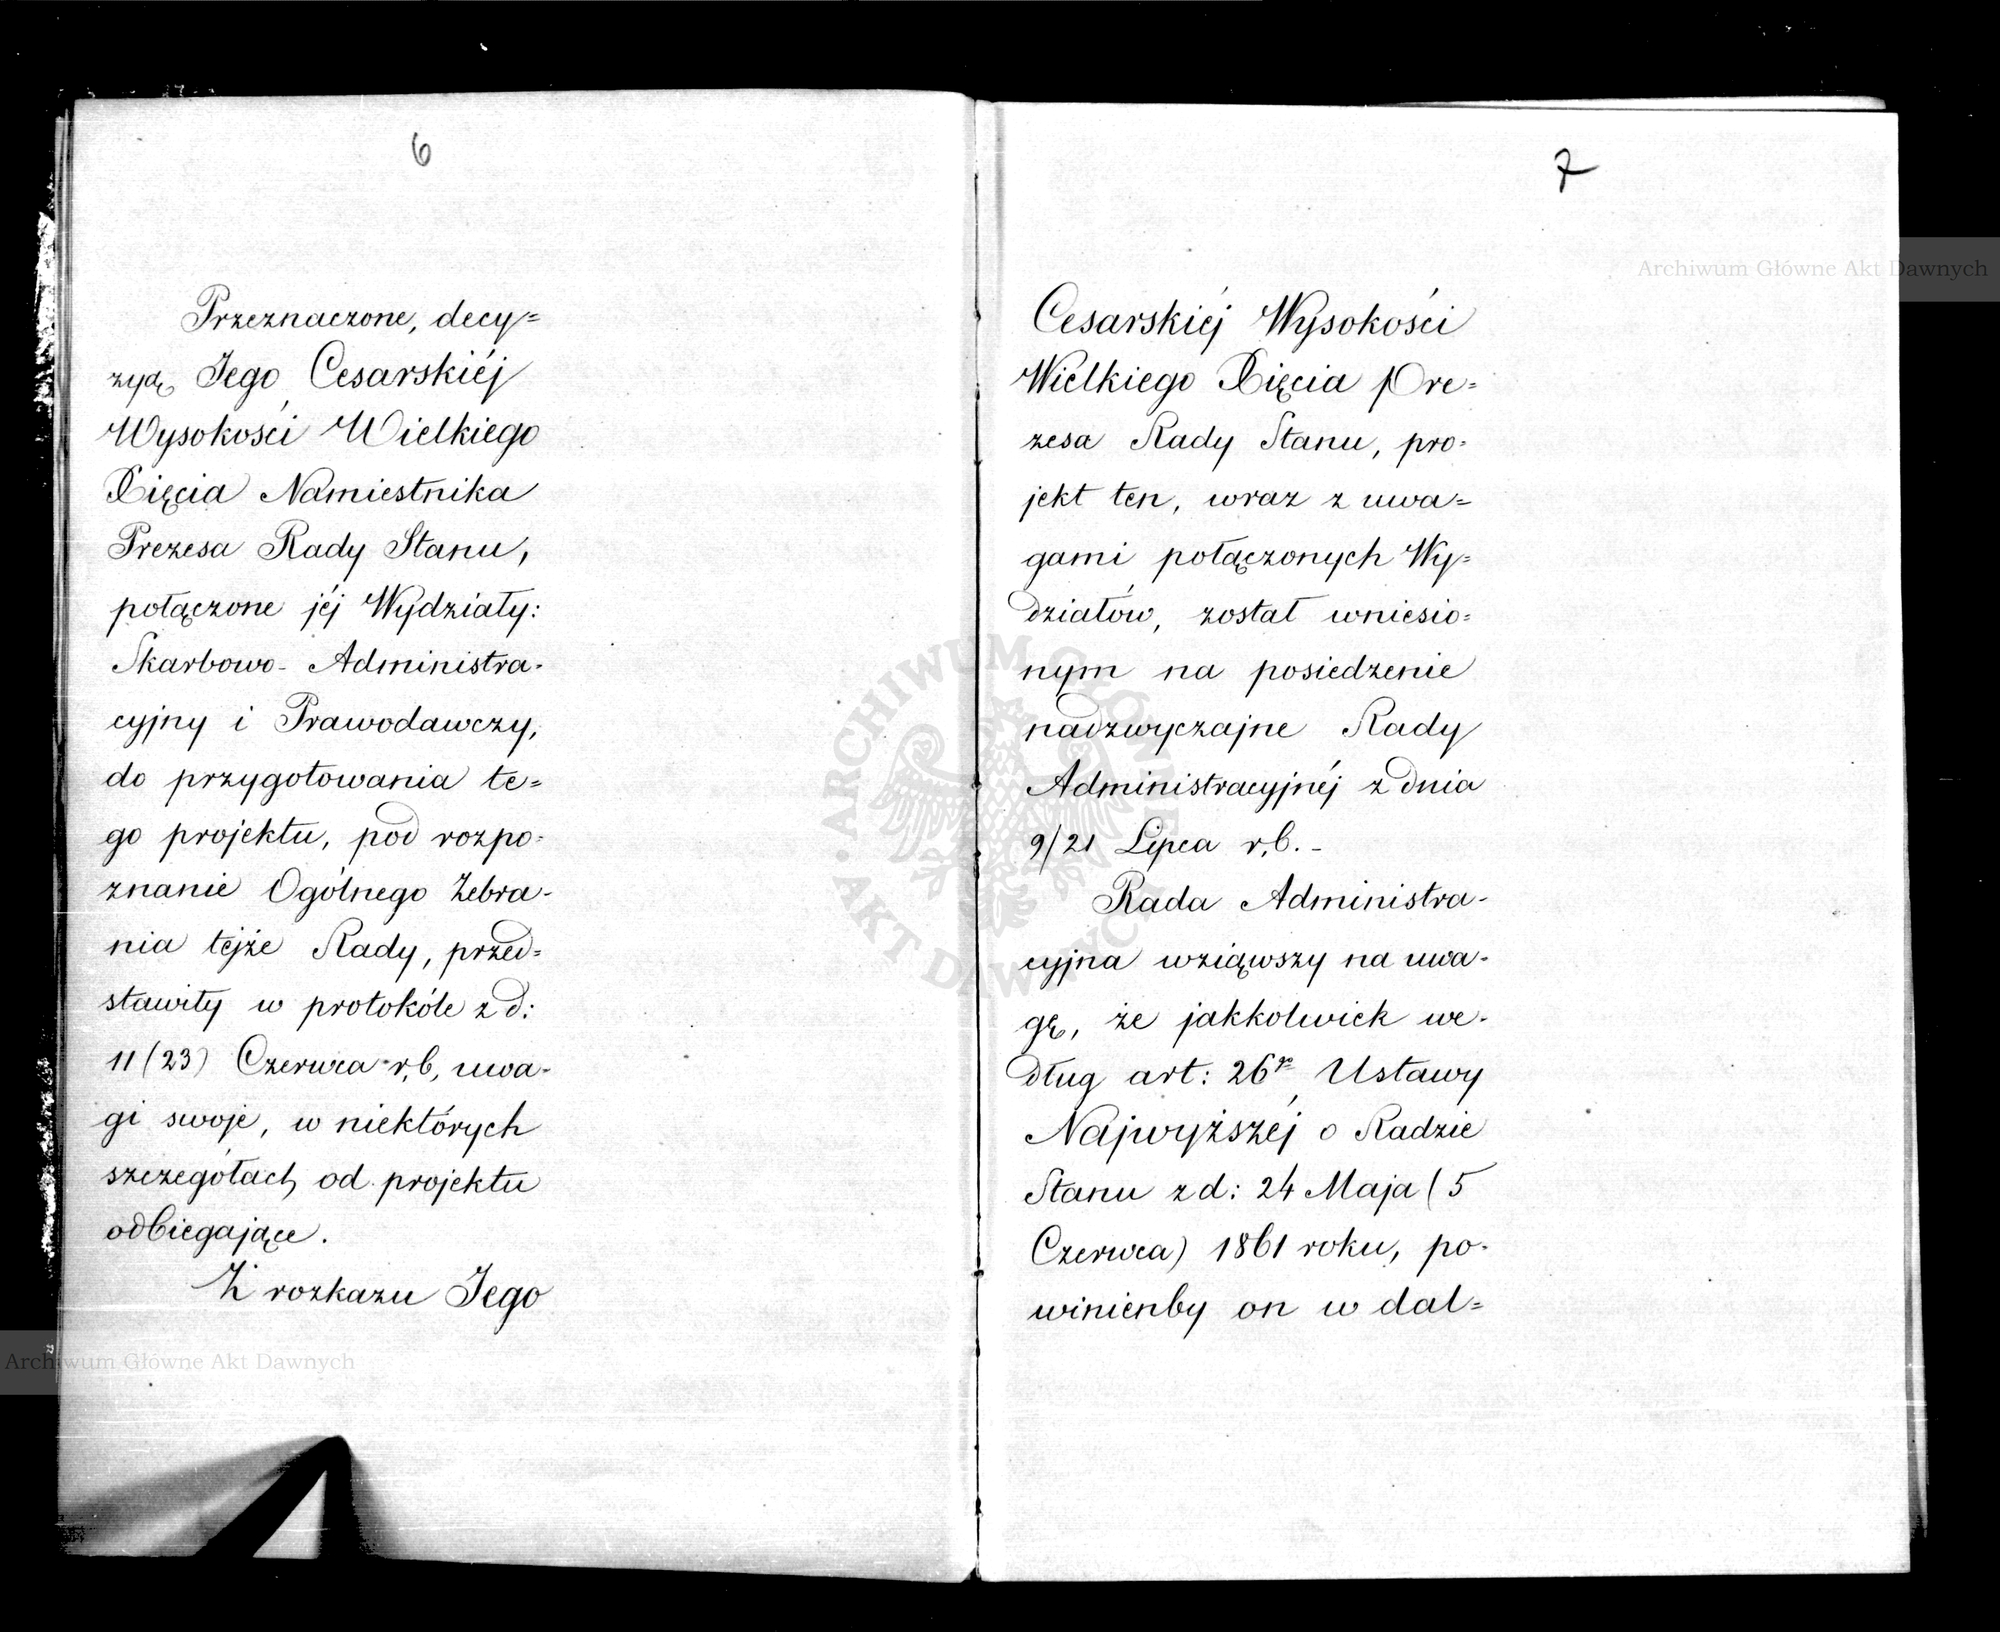 6
Przeznaczone, decy=
zyą Jego Cesarskiéj
Wysokości Wielkiego
Xięcia Namiestnika
Prezesa Rady Stanu,
połączone jéj Wydziały:
Skarbowo-Administra-
cyjny i Prawodawczy,
do przygotowania te=
go projektu, pod rozpo-
znanie Ogólnego Zebra-
nia tejże Rady, przed=
stawiły w protokóle z d:
11 (23) Czerwca r, b, uwa-
gi swoje, w niektórych
szczegółach od projektu
odbiegające.
Z rozkazu Jego
7
Cesarskiéj Wysokości
Wielkiego Xięcia Pre=
zesa Rady Stanu, pro-
jekt ten, wraz z uwa=
gami połączonych Wy=
działów, został wniesio=
nym na posiedzenie
nadzwyczajne Rady
Administracyjnéj z dnia
9/21 Lipca r, b. -
Rada Administra-
cyjna wziąwszy na uwa-
gę, że jakkolwiek we-
dług art: 26º Ustawy
Najwyższéj o Radzie
Stanu z d: 24 Maja (5
Czerwca) 1861 roku, po-
winienby on w dal=
Archiwum Główne Akt Dawnych
Archiwum Główne Akt Dawnych
· ARCHIWUM GŁÓWNE · AKT DAWNYCH